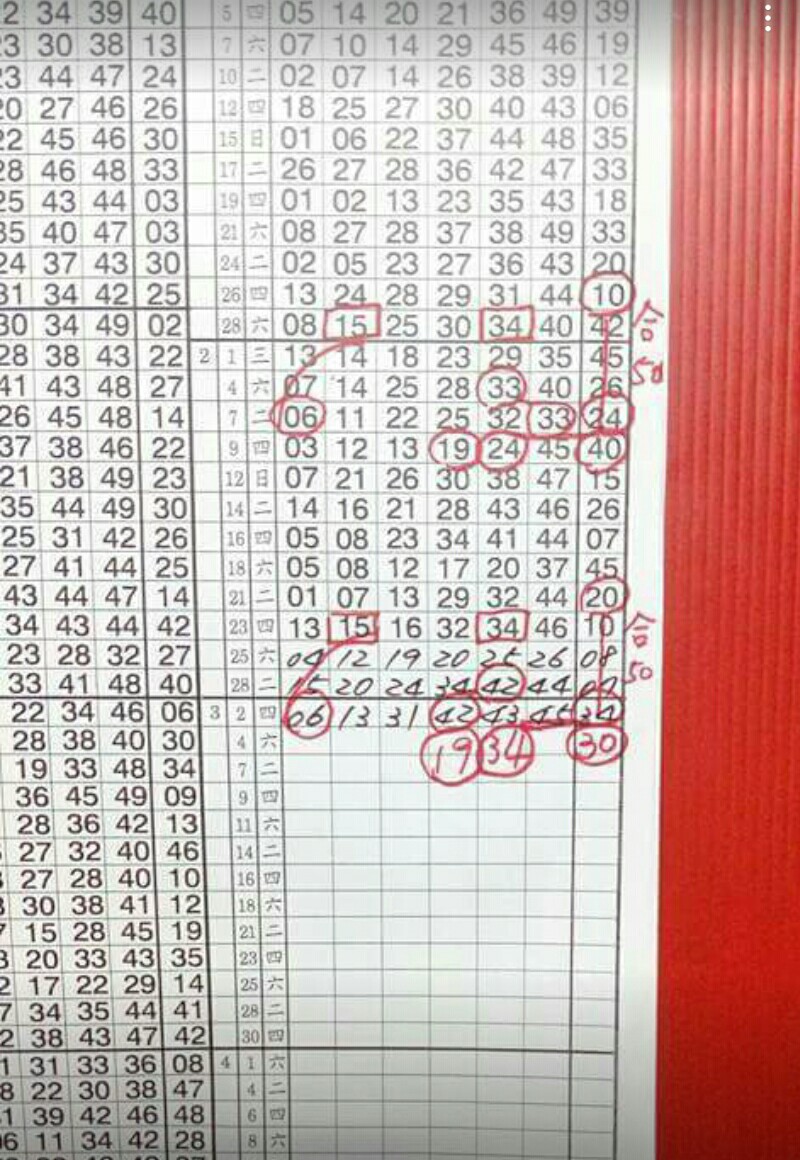 2 34 39 40 5 四 05 14 20 21 36 49 39
23 30 38 13 7 六 07 10 14 29 45 46 19
23 44 47 24 10 二 02 07 14 26 38 39 12
20 27 46 26 12 四 18 25 27 30 40 43 06
22 45 46 30 15 日 01 06 22 37 44 48 35
28 46 48 33 17 二 26 27 28 36 42 47 33
25 43 44 03 19 四 01 02 13 23 35 43 18
35 40 47 03 21 六 08 27 28 37 38 49 33
24 37 43 30 24 二 02 05 23 27 36 43 20
31 34 42 25 26 四 13 24 28 29 31 44 10
30 34 49 02 28 六 08 15 25 30 34 40 42
28 38 43 22 2 1 三 13 14 18 23 29 35 45
50
41 43 48 27 4 六 07 14 25 28 33 40 26
26 45 48 14 7 二 06 11 22 25 32 33 24
37 38 46 22 9 四 03 12 13 19 24 45 40
21 38 49 23 12 日 07 21 26 30 38 47 15
35 44 49 30 14 二 14 16 21 28 43 46 26
25 31 42 26 16 四 05 08 23 34 41 44 07
27 41 44 25 18 六 05 08 12 17 20 37 45
43 44 47 14 21 二 01 07 13 29 32 44 20
34 43 44 42 23 四 13 15 16 32 34 46 10
23 28 32 27 25 六 04 12 19 20 25 26 08
50
33 41 48 40 28 二 15 20 24 34 42 44
22 34 46 06 3 2 四 06 13 31 42 43 45 34
28 38 40 30 4 六 19 34 30
19 33 48 34 7 二
36 45 49 09 9 四
28 36 42 13 11 六
27 32 40 46 14 二
27 28 40 10 16 四
30 38 41 12 18 六
15 28 45 19 21 二
3 20 33 43 35 23 四
2 17 22 29 14 25 六
7 34 35 44 41 28 二
2 38 43 47 42 30 四
1 31 33 36 08 4 1 六
8 22 30 38 47 4 二
1 39 42 46 48 6 四
06 11 34 42 28 8 六